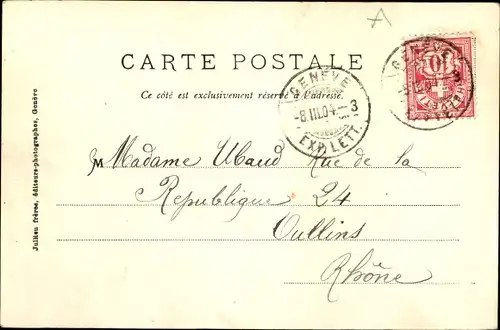 CARTE POSTALE
Ce côté est exclusivement réservé à l'adresse.
GENÈVE
-8.III.04.-3
EXP. LETT.
GENÈVE
10
Madame Ubaud Rue de la
République 24
Oullins
Rhône
Jullien frères, éditeurs-photographes, Genève